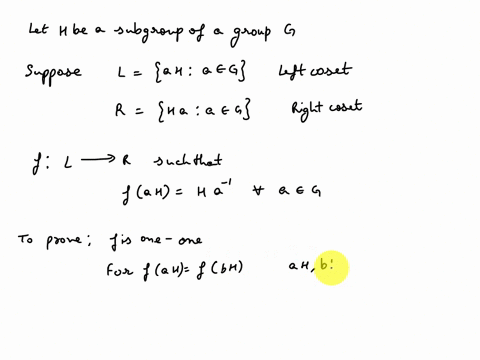 Let H be a subgroup of a group G
Suppose L = {aH : a ∈ G} Left coset
R = {Ha : a ∈ G} Right coset
f : L ⟶ R such that
f(aH) = H a⁻¹ ∀ a ∈ G
To prove ; f is one-one
For f(aH) = f(bH) aH, b